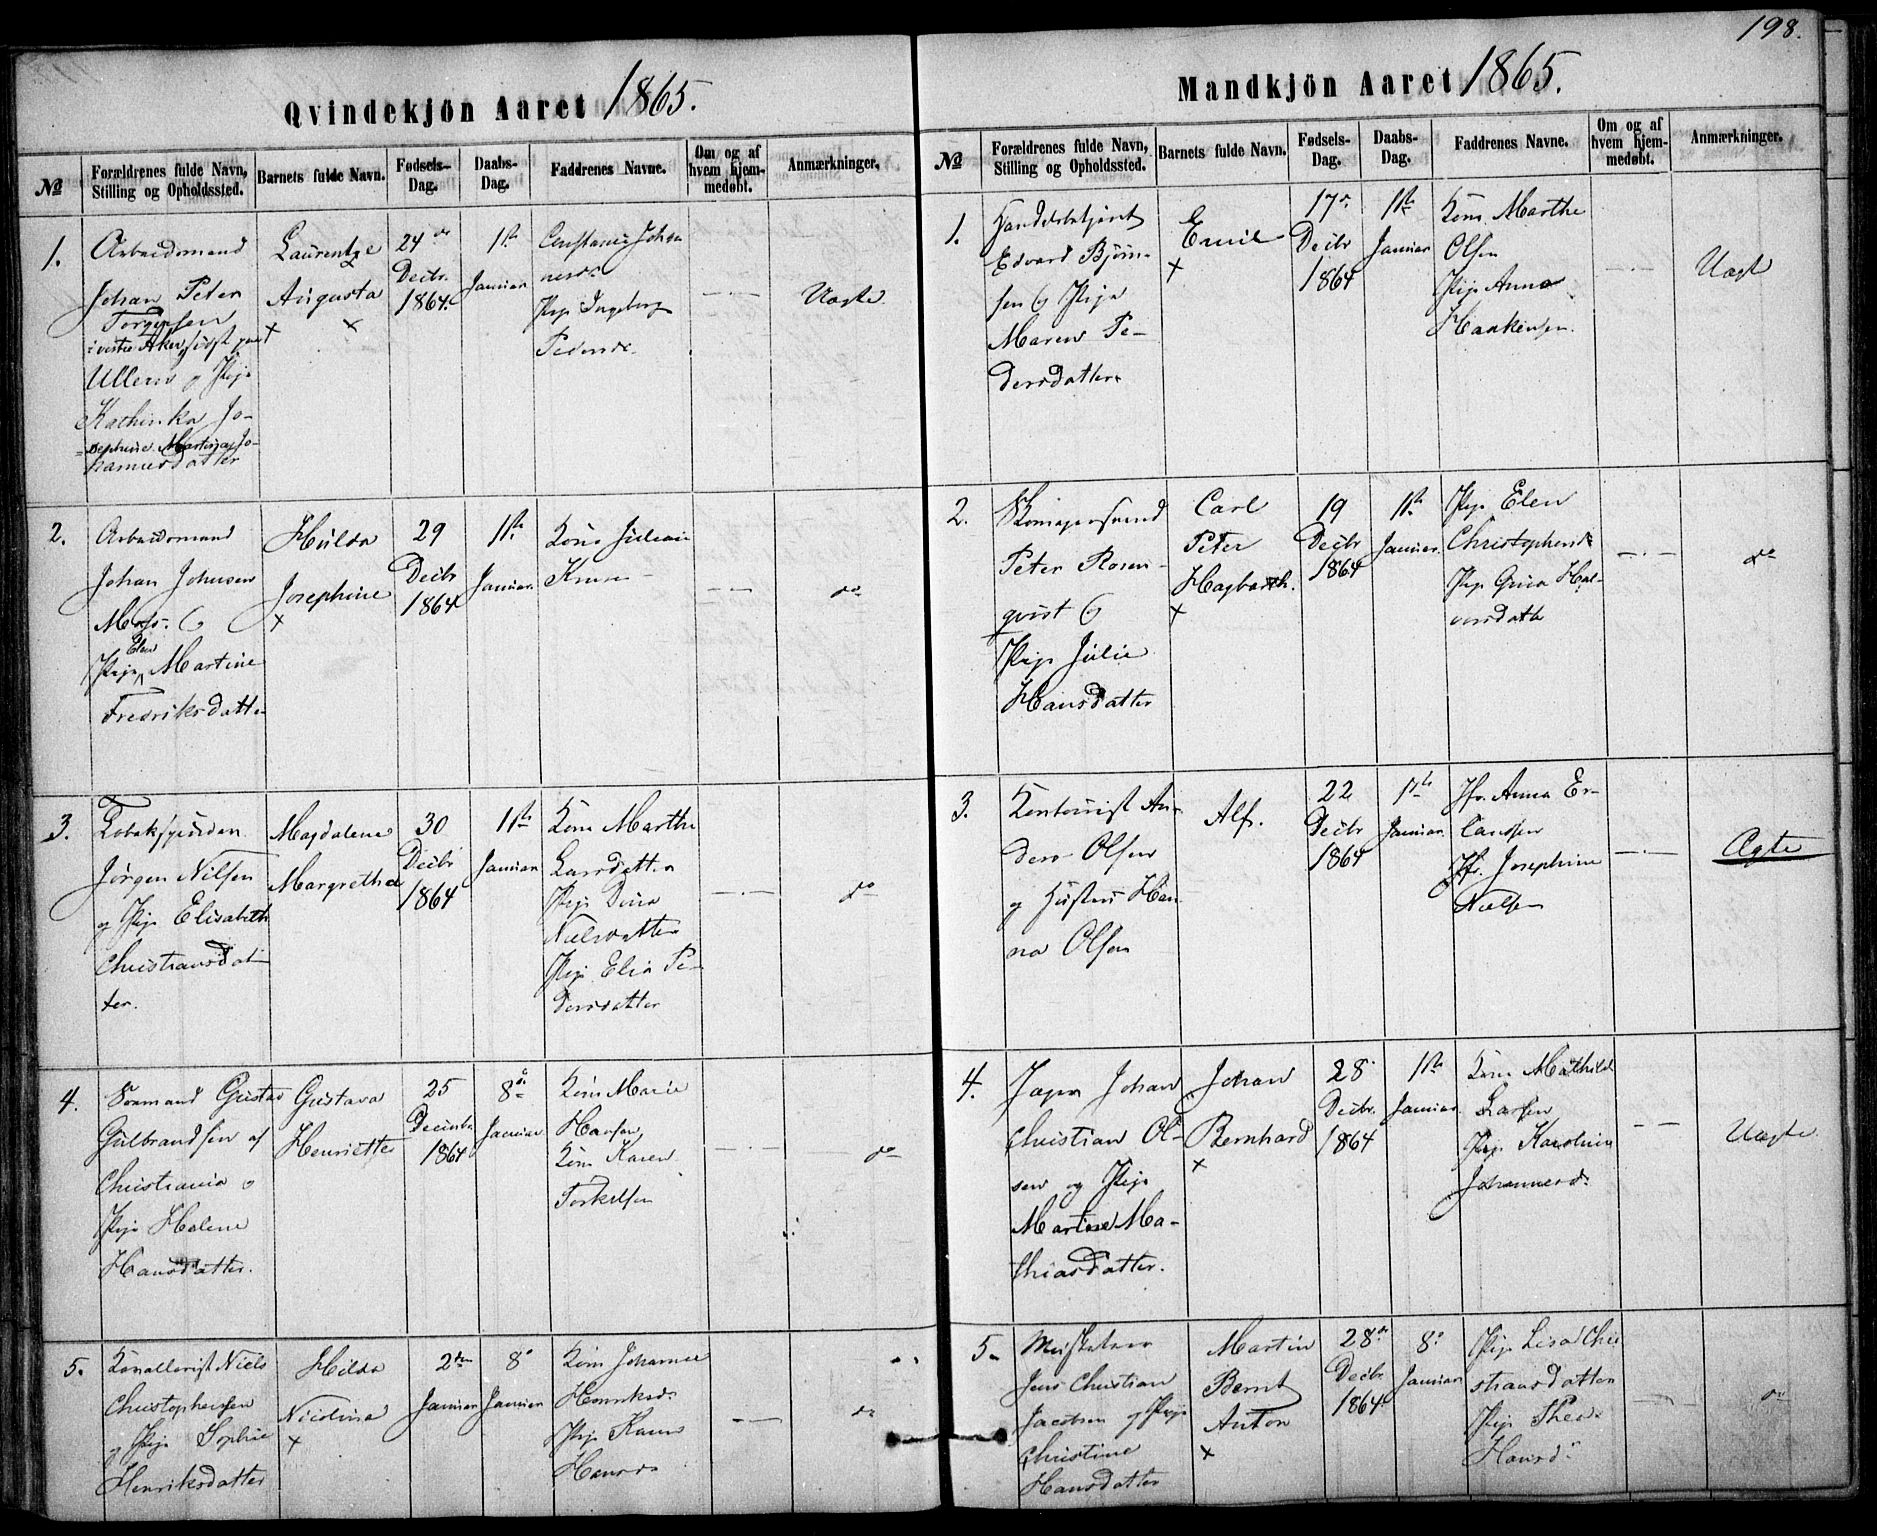 198.
Qvindekjön Aaret 1865.
№
Forældrenes fulde Navn,
Stilling og Opholdssted.
Barnets fulde Navn.
Fødsels-
Dag.
Daabs-
Dag.
Faddrenes Navne.
Om og af
hvem hjem-
medøbt.
Anmærkninger.
1.
Arbeidsmand
Johan Peter
Torgersen
i vestre Aker, sidst paa
Ullern og Pige
Kathinka Jo-
sephine Martina Jo-
hannesdatter
Laurentze
Augusta
24de
Decbr.
1864.
1ste
Januar
Constance Johan
nesd.
Pige Ingeborg
Pedersd.
Uægte.
2.
Arbeidsmand
Johan Johnsen
Moss. og
Pige Elen Martine
Fredriksdatter
Hulda
Josephine
29
Decbr
1864
1ste
Januar.
Kone
do
3.
Jørgen Nilsen
og Pige Elisabeth
Christiansdat-
ter.
Magdalene
Margrethe
30
Decbr
1864
1ste
Januar
Kone Marthe
Larsdatter
Pige Dina
Nielsdatter
Pige Elia Pe-
dersdatter
do
4.
Sømand Gustav
Gulbrandsen af
Christiania og
Pige Helene
Hansdatter.
Gustava
Henriette
25
Decembr
1864
8de
Januar
Kone Marie
Hansen
Kone Karen
Torkelsen
do
5.
Kavallerist Niels
Christophersen
og Pige Sophie
Henriksdatter
Hilda
Nicolina
2den
Januar
8de
Januar
Kone Johanne
Henriksd.
Pige Karen
Hansd.
do
Mandkjön Aaret 1865.
№
Forældrenes fulde Navn,
Stilling og Opholdssted.
Barnets fulde Navn.
Fødsels-
Dag.
Daabs-
Dag.
Faddrenes Navne.
Om og af
hvem hjem-
medøbt.
Anmærkninger.
1.
Handelsbetjent
Edvard Bjørn-
sen og Pige
Maren Pe-
dersdatter
Emil
17de
Decbr
1864
1ste
Januar
Kone Marthe
Olsen
Pige Anna
Haakensen.
Uægte
2.
Skomagersvend
Peter Rosen-
qvist og
Pige Julie
Hansdatter
Carl
Peter
Hagbarth.
19
Decbr
1864
1ste
Januar.
Pige Elen
Christophersd.
Pige Hal-
vorsdatter
do
3.
Kontorist An-
ders Olsen
og Hustru Han
na Olsen
Alf.
22
Decbr
1864
1ste
Januar.
Jfr. Anna Er-
landsen
Jfr. Josephine
Nielsen
Ægte
4.
Jæger Johan
Christian Ol-
sen og Pige
Martine Ma-
thiasdatter.
Johan
Bernhard
28
Decbr.
1864
1ste
Januar.
Kone Mathild
Larsen
Pige Karoline
Johannesd.
Uægte.
5.
Musketeer
Jens Christian
Jacobsen og Pige
Christine
Hansdatter
Martin
Bernt
Anton
28de
Decbr
1864
8de
Januar
Pige Lisa Chri
stiansdatter
Pige Thea
Hansd.
do